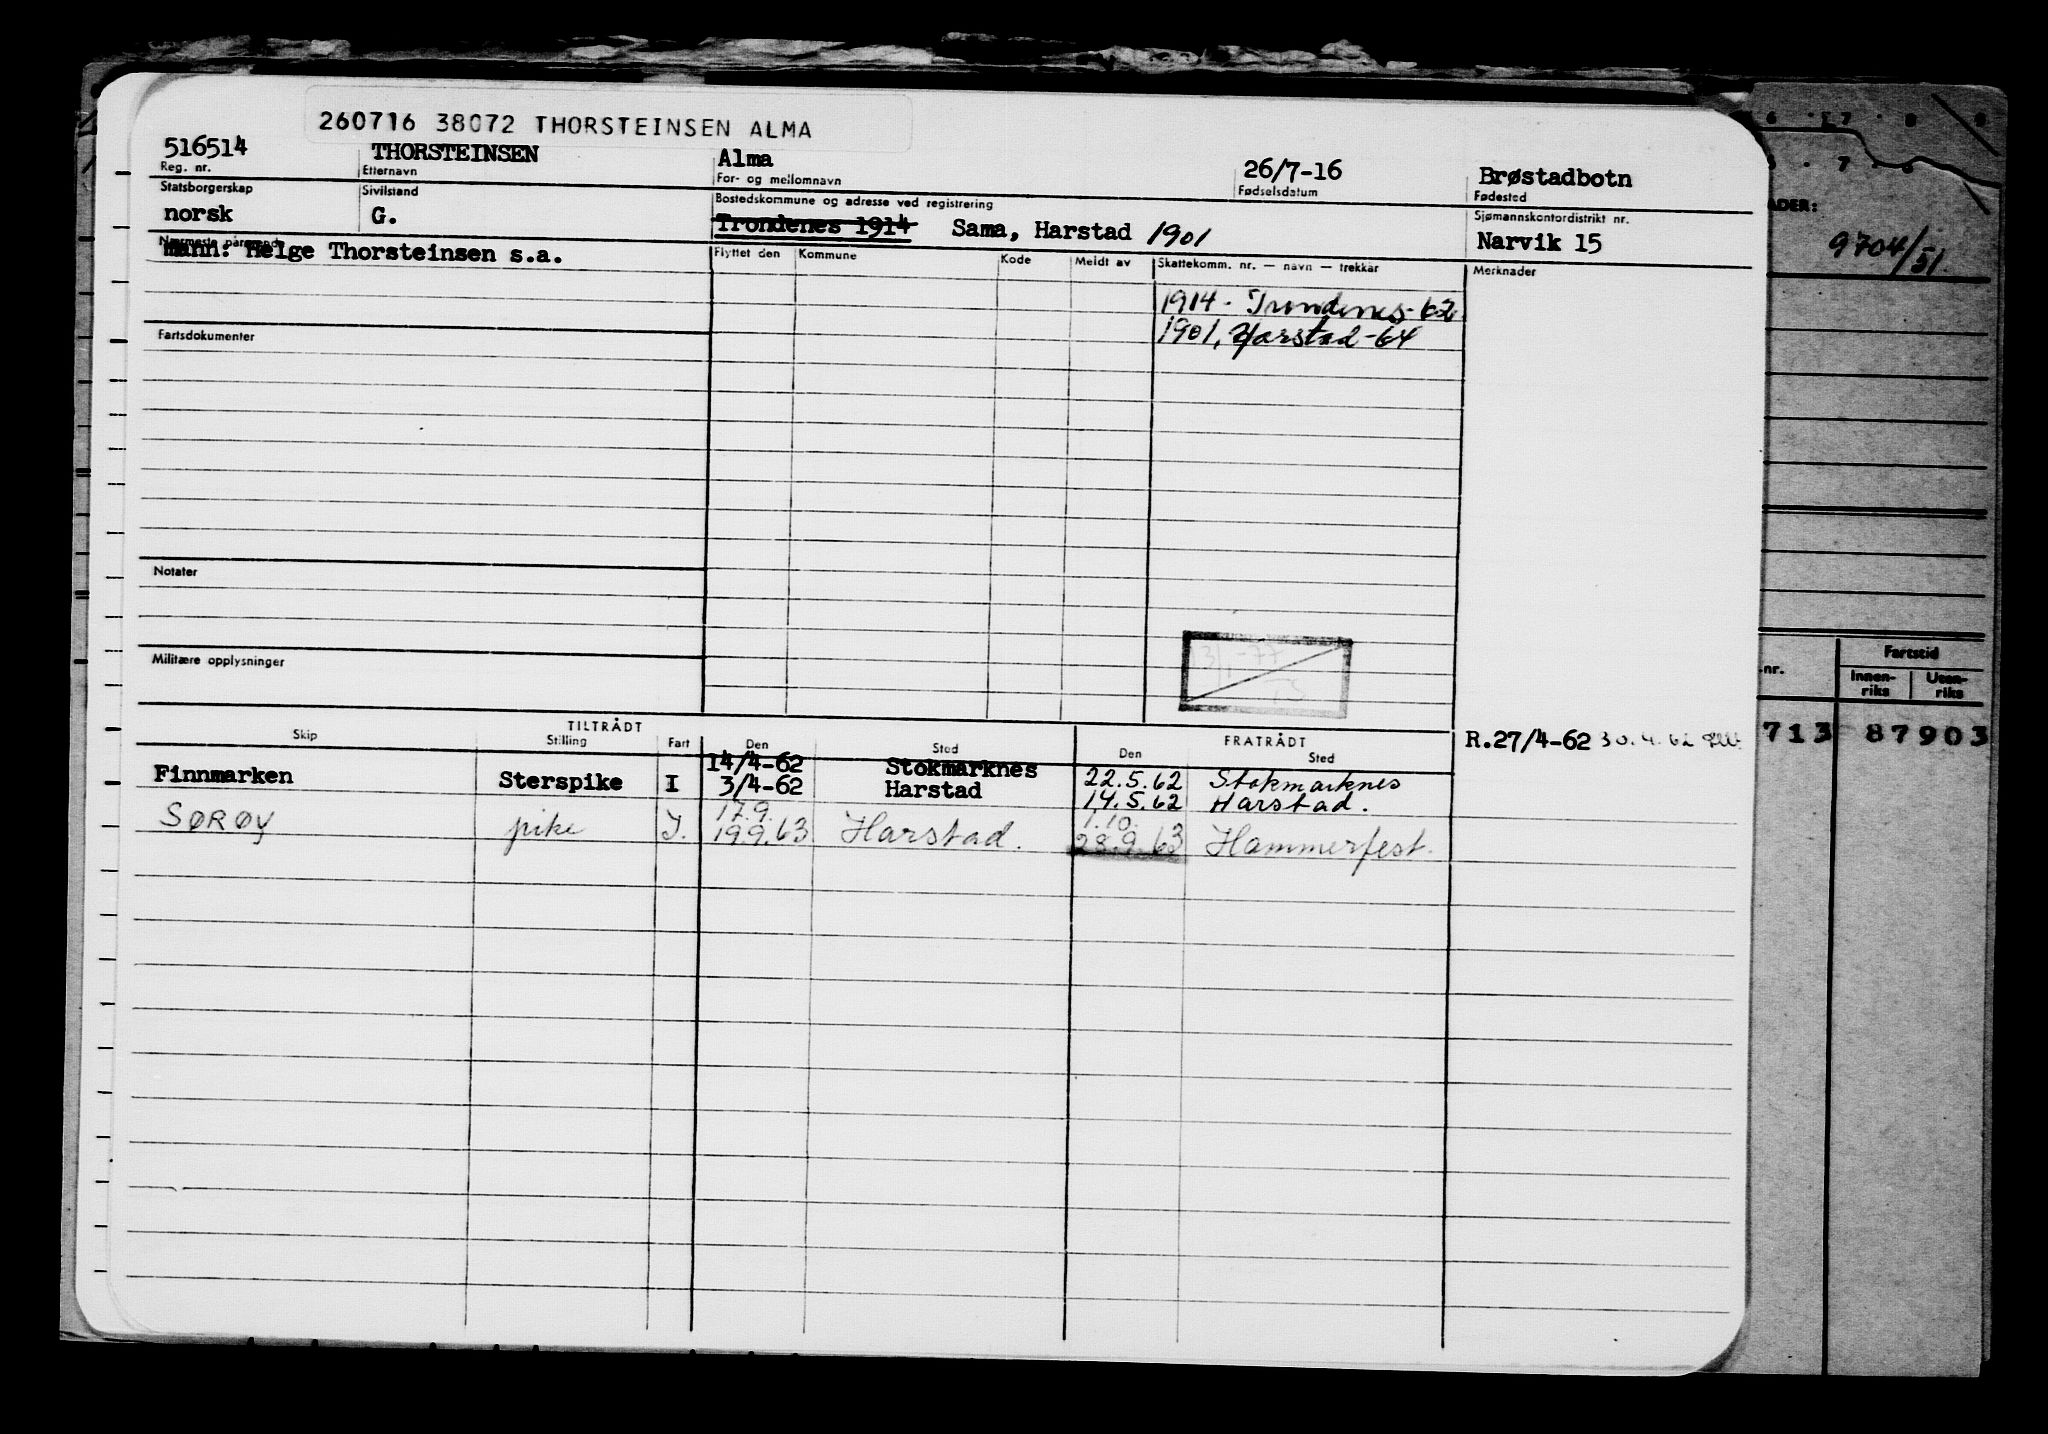 260716 38072 THORSTEINSEN ALMA
516514 THORSTEINSEN Alma 26/7-16 Brøstadbotn
Reg. nr. Etternavn For- og mellomnavn Fødselsdatum Fødested
Statsborgerskap Sivilstand Bostedskommune og adresse ved registrering Sjømannskontordistrikt nr.
norsk G. Trondenes 1914 Sama, Harstad 1901 Narvik 15
Nærmeste pårørende
mann: Helge Thorsteinsen s.a.
Flyttet den Kommune Kode Meldt av Skattekomm. nr. — navn — trekkår Merknader
1914 - Trondenes-62
1901, Harstad-64
Fartsdokumenter
Notater
Militære opplysninger
TILTRÅDT FRATRÅDT
Skip Stilling Fart Den Sted Den Sted
R.27/4-62 30.4.62
14/4-62 Stokmarknes 22.5.62 Stokmarknes
Finnmarken Sterspike I 3/4-62 Harstad 14.5.62 Harstad.
17.9. 1.10.
SØRØY pike I. 19.9.63 Harstad. 28.9.63 Hammerfest.
ADER:
9704/51.
nr. Fartstid
Innen-riks Uten-riks
713 87903